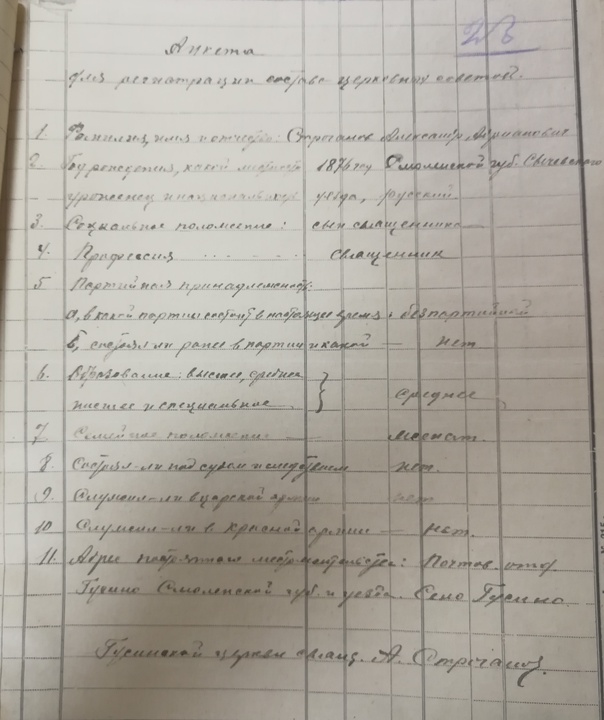 Анкета
для регистрации состава церковных советов.
1. Фамилия, имя и отчество: Строганов Александр Андрианович
2. Год рождения, какой местности 1876 году Смоленской губ. Сычевского
уроженец и национальность уезда, русский
3. Социальное положение: сын священника
4. Профессия священник
5 Партийная принадлежность:
а, в какой партии состоит в настоящее время, безпартийный
б, состоял ли ранее в партии и какой — нет
6. Образование: высшее, среднее
низшее и специальное среднее
7 Семейное положение женат.
8. Состоял-ли под судом и следствием нет.
9. Служил-ли в царской армии нет
10 Служил-ли в красной армии — нет.
11. Адрес постоянного местожительства: Почтов. отд.
Гусино Смоленской губ. и уезда. Село Гусино.
Гусинской церкви свящ. А. Строганов.